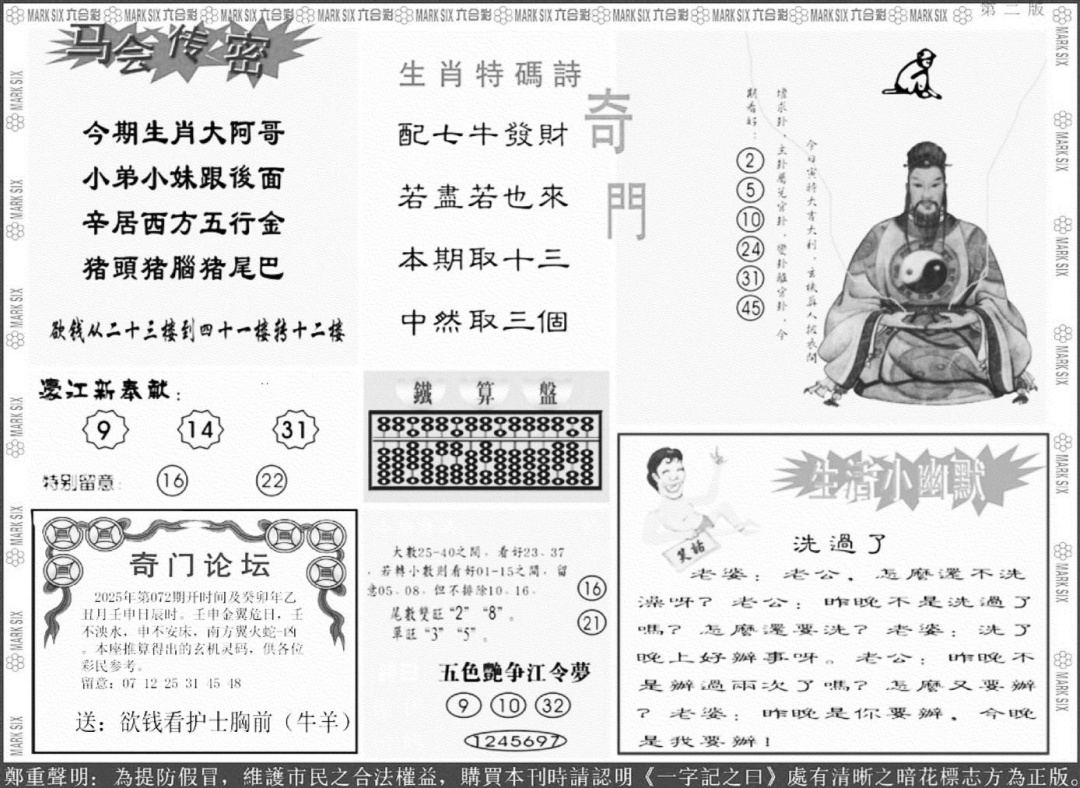 MARK SIX 六合彩 MARK SIX 六合彩 MARK SIX 六合彩 MARK SIX 六合彩 MARK SIX 六合彩 MARK SIX 六合彩 MARK SIX 六合彩 MARK SIX 六合彩 MARK SIX 六合彩 MARK SIX
第二版
马会传密
今期生肖大阿哥
小弟小妹跟後面
辛居西方五行金
猪頭猪腦猪尾巴
欲钱从二十三楼到四十一楼转十二楼
濠江新奉献：
9 14 31
特别留意: 16 22
奇门论坛
2025年第072期开时间及癸卯年乙
丑月壬申日辰时。壬申金翼危日，壬
不泱水，申不安床，南方翼火蛇-凶
。本座推算得出的玄机灵码，供各位
彩民参考。
留意：07 12 25 31 45 48
送：欲钱看护士胸前（牛羊）
生肖特碼詩
配七牛發財
若盡若也來
本期取十三
中然取三個
鐵算盤
大數25-40之間。看好23、37
。若轉小數則看好01-15之間。留
意05、08。但不排除10、16。
尾數雙旺“2” “8”。
單旺“3” “5”。
16
21
五色艷争江令夢
9 10 32
1245697
奇門
今日寅時大吉大利，玄機真人披衣問
壇求卦，主卦屬兌宮卦，變卦離宮卦，今
期看好：
2
5
10
24
31
45
生活小幽默
笑話
洗過了
老婆：老公，怎麼還不洗
澡呀？老公：昨晚不是洗過了
嗎？怎麼還要洗？老婆：洗了
晚上好辦事呀。老公：昨晚不
是辦過兩次了嗎？怎麼又要辦
？老婆：昨晚是你要辦，今晚
是我要辦！
鄭重聲明：為提防假冒，維護市民之合法權益，購買本刊時請認明《一字記之曰》處有清晰之暗花標志方為正版。